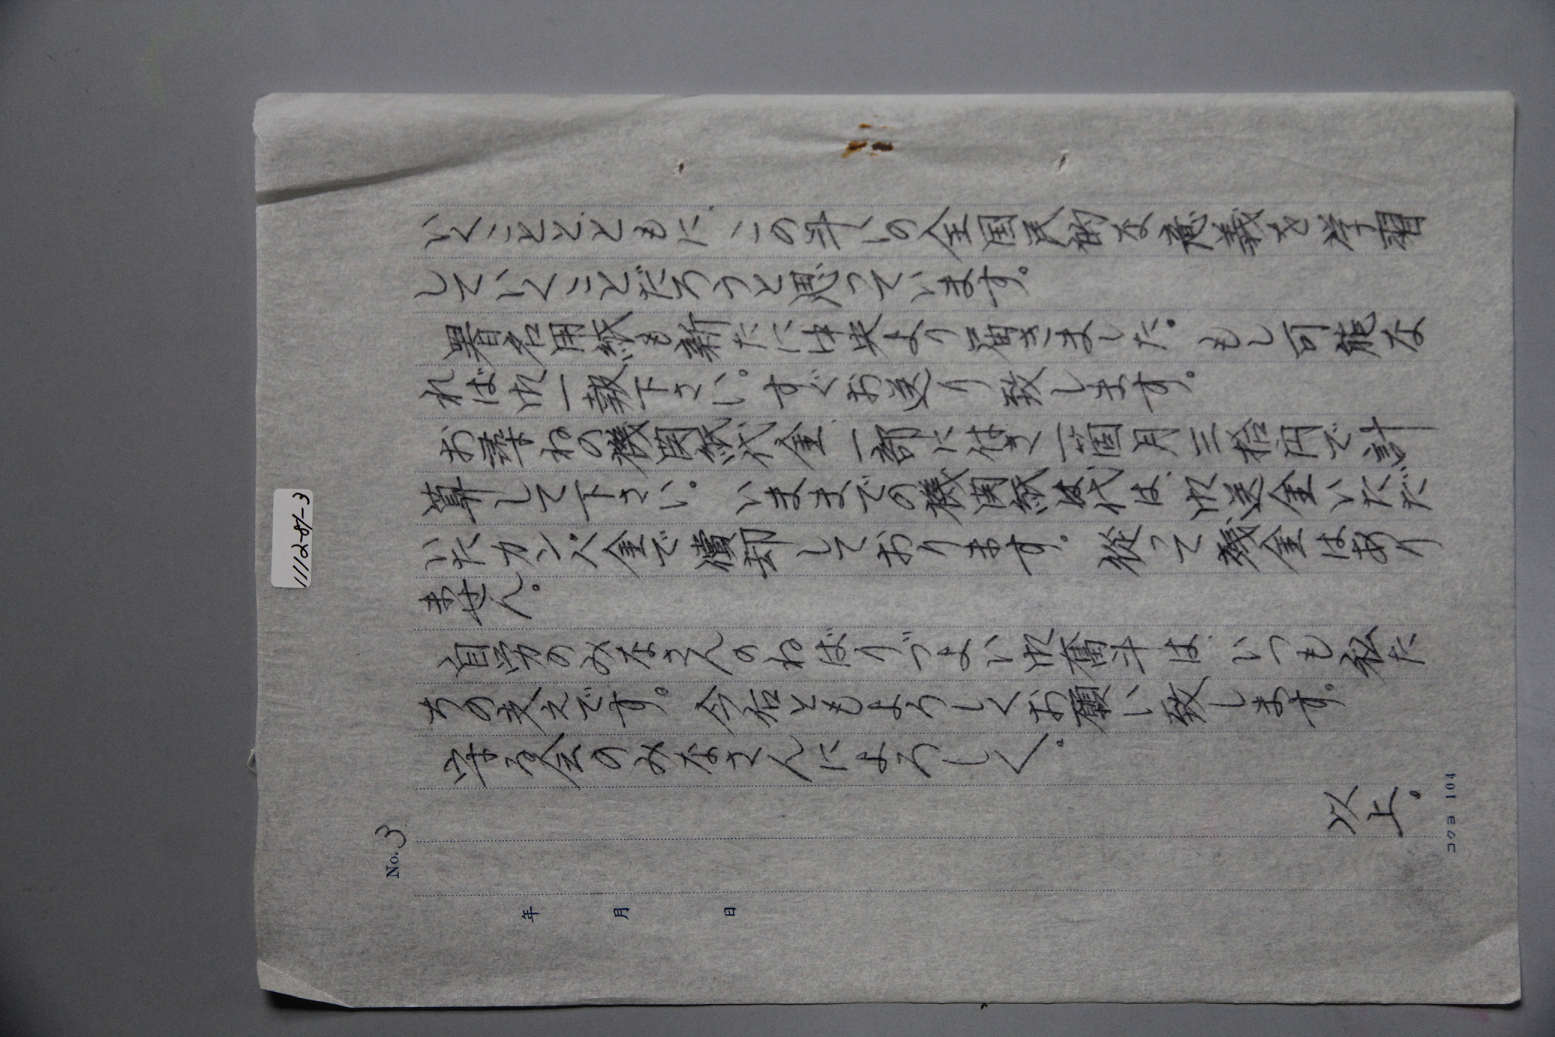 いくこととともに、この斗いの全国民的な意義を学習
していくことだろうと思っています。
署名用紙も新たに中央より届きました。もし可能な
れば御一報下さい。すぐお送り致します。
お尋ねの機関紙代金、一部につき一箇月三拾円で計
算して下さい。いままでの機関紙代は、御送金いただ
いたカンパ金で償却しております。従って残金はあり
ません。
自労のみなさんのねばりづよい御奮斗は、いつも私た
ちの支えです。今后ともよろしくお願い致します。
守る会のみなさんによろしく。
以上。
No. 3
年 月 日
コクヨ 104
1112-84-3